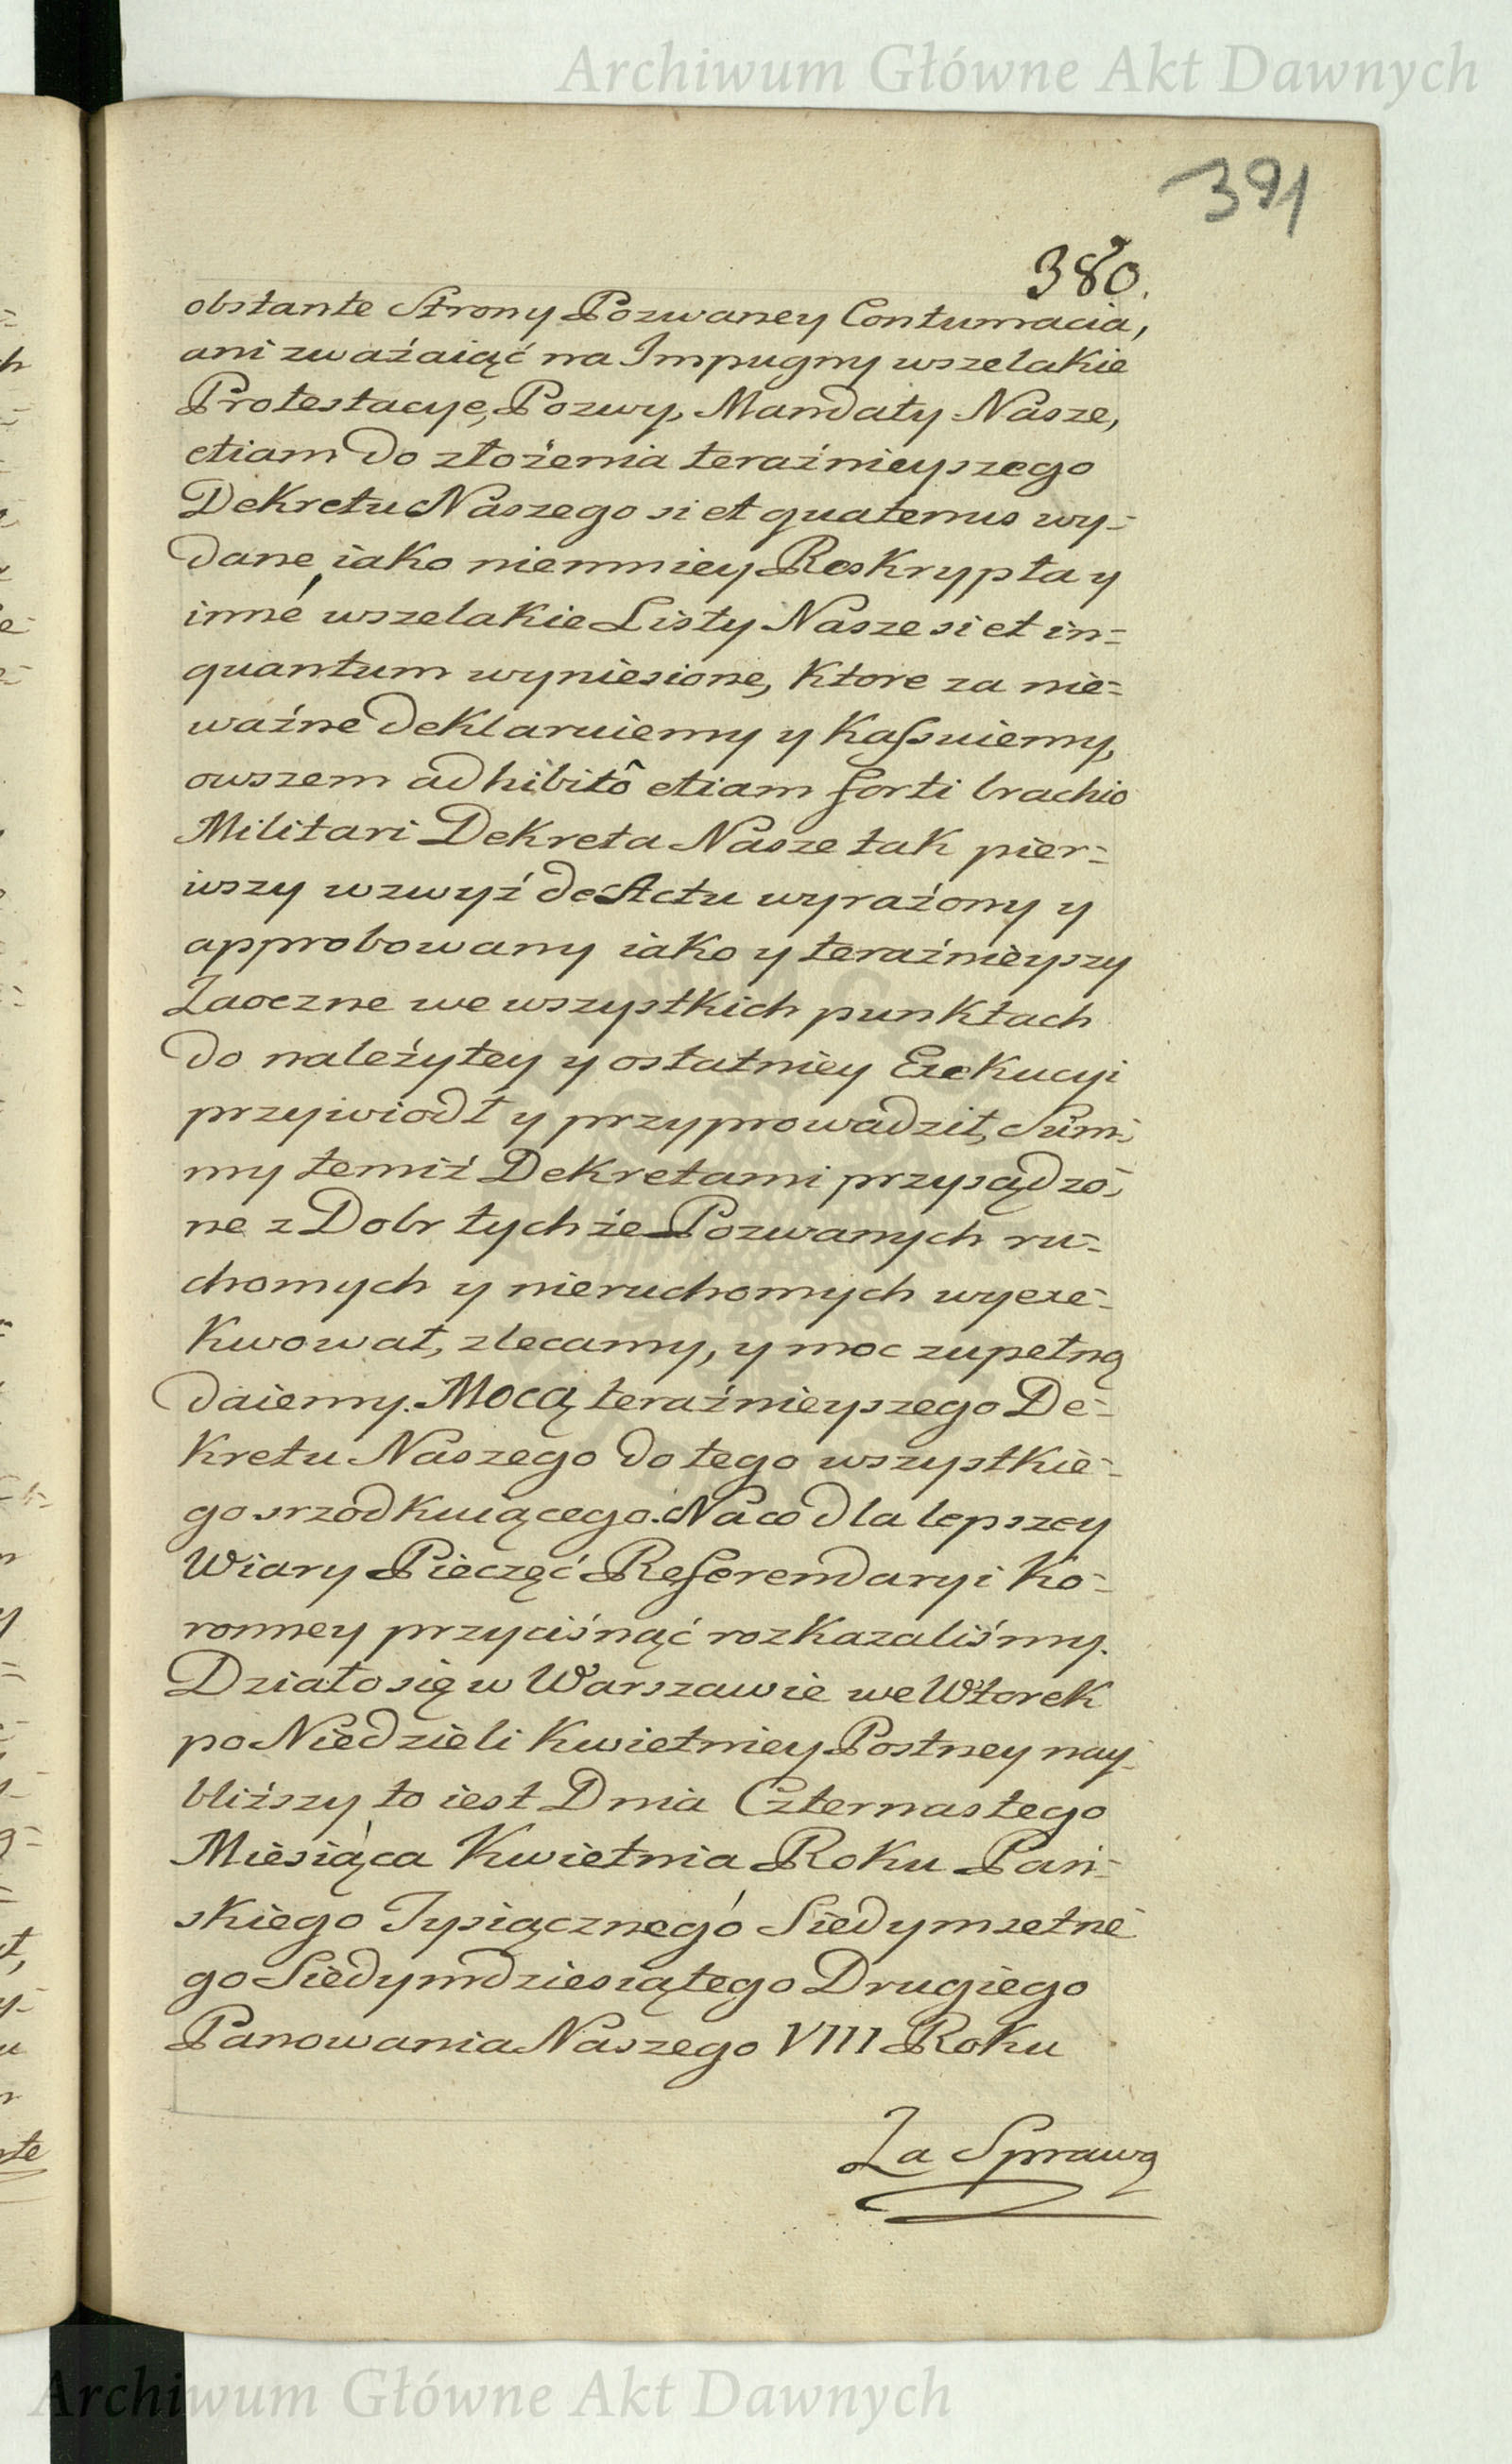 Archiwum Główne Akt Dawnych
391
380.
obstante Strony Pozwaney Contumacia,
ani zważaiąć na Impugny wszelakie
Protestacye, Pozwy, Mandaty Nasze,
etiam do złożenia teraźnieyszego
Dekretu Naszego si et quatenus wy=
dane, iako niemniey Reskrypta y
inné wszelakie Listy Nasze si et in=
quantum wyniesione, ktore za nie=
ważne deklaruiemy y kassuiemy,
owszem adhibitô etiam forti brachio
Militari Dekreta Nasze tak pier=
wszy wzwyż de Actu wyrażony y
approbowany iako y teraźnieyszy
Zaoczne we wszystkich punktach
do należytey y ostatniey Exekucyi
przywiodł y przyprowadził, Sum=
my temiż Dekretami przysądzo=
ne z Dobr tychże Pozwanych ru=
chomych y nieruchomych wyexe=
kwował, zlecamy, y moc zupełną
daiemy. Mocą teraźnieyszego De=
kretu Naszego do tego wszystkie=
go srzodkuiącego. Na co dla lepszey
Wiary Pieczęć Referendaryi Ko=
ronney przycisnąć rozkazaliśmy.
Działo się w Warszawie we Wtorek
po Niedzieli Kwietniey Postney nay=
bliższy to iest Dnia Czternastego
Miesiąca Kwietnia Roku Pań=
skiego Tysiącznego Siedymsetne
go Siedymdziesiątego Drugiego
Panowania Naszego VIII Roku
Za Sprawą
Archiwum Główne Akt Dawnych